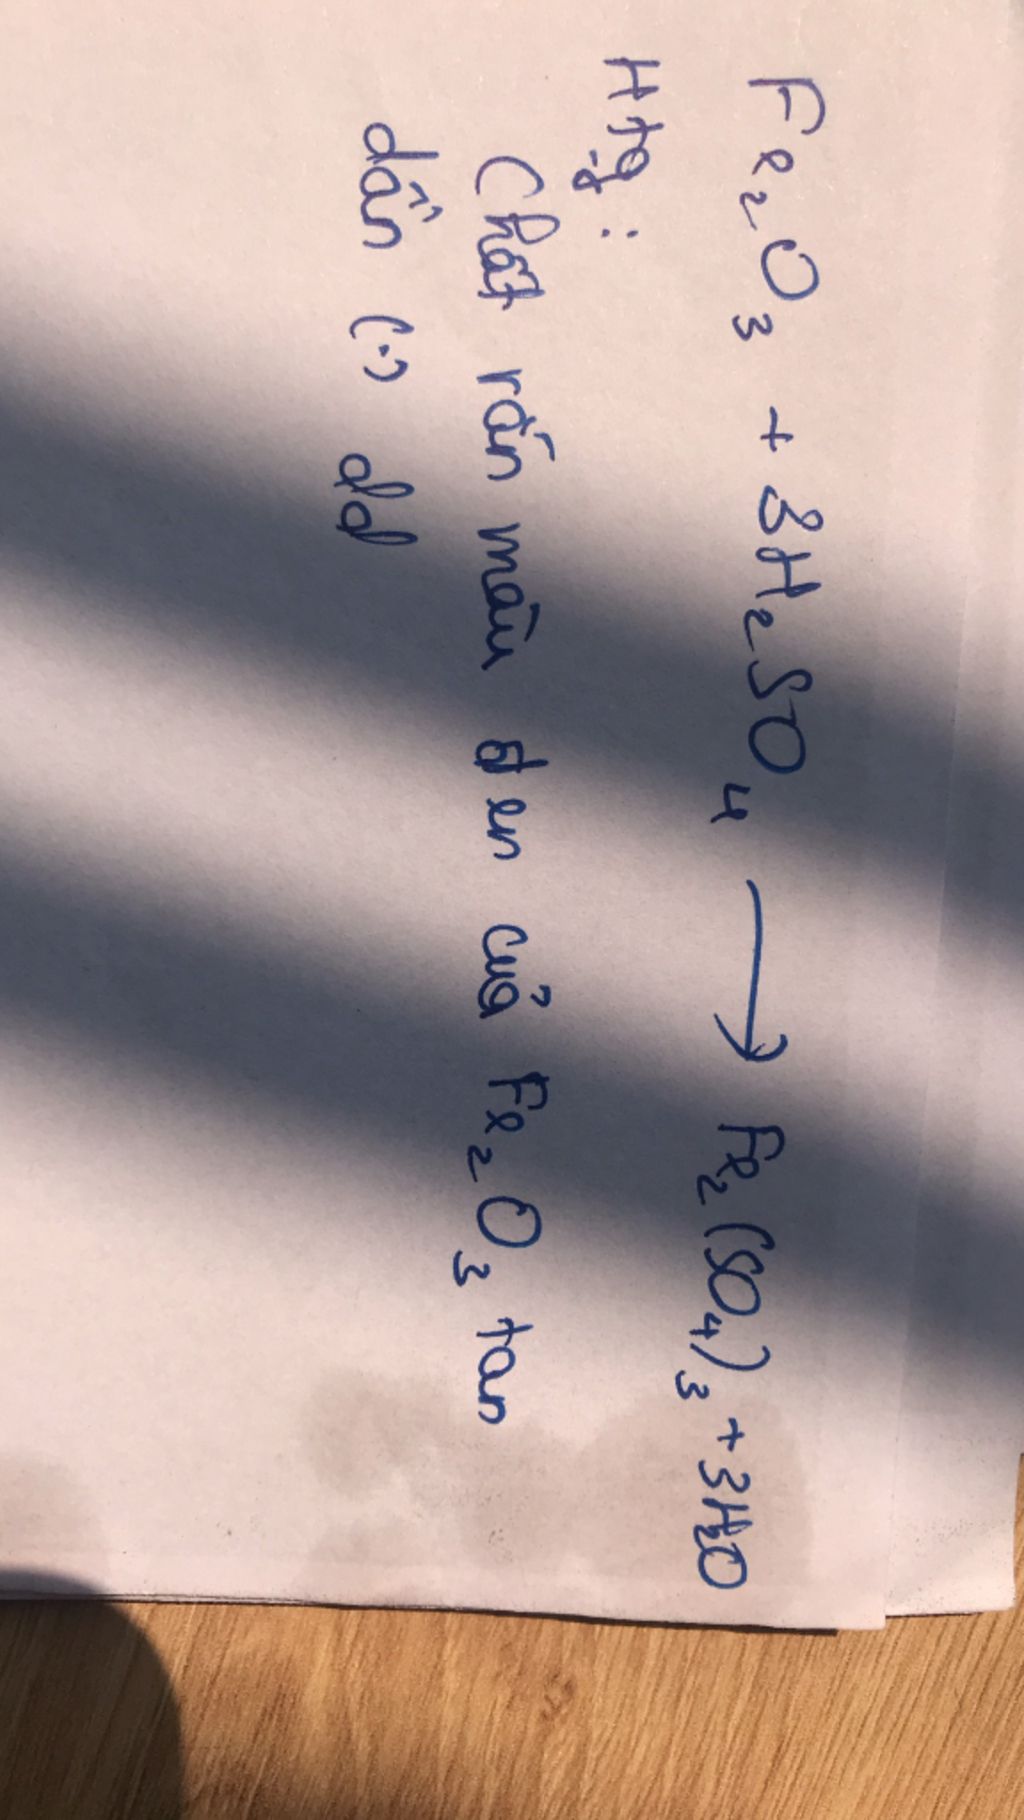 Fe₂O₃ + 3H₂SO₄ → Fe₂(SO₄)₃ + 3H₂O
Htg:
Chất rắn màu đen của Fe₂O₃ tan
dần (.) dd